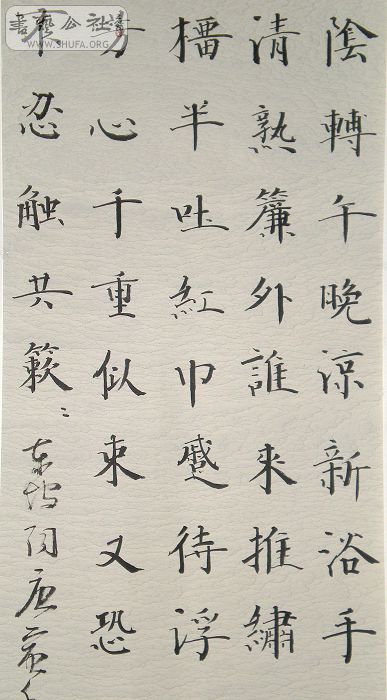 書藝公社
WWW.SHUFA.ORG
陰轉午晚涼新浴手
清熟簾外誰來推繡
橊半吐紅巾蹙待浮
芳心千重似束又恐
不忍触共簌〻東坡詞